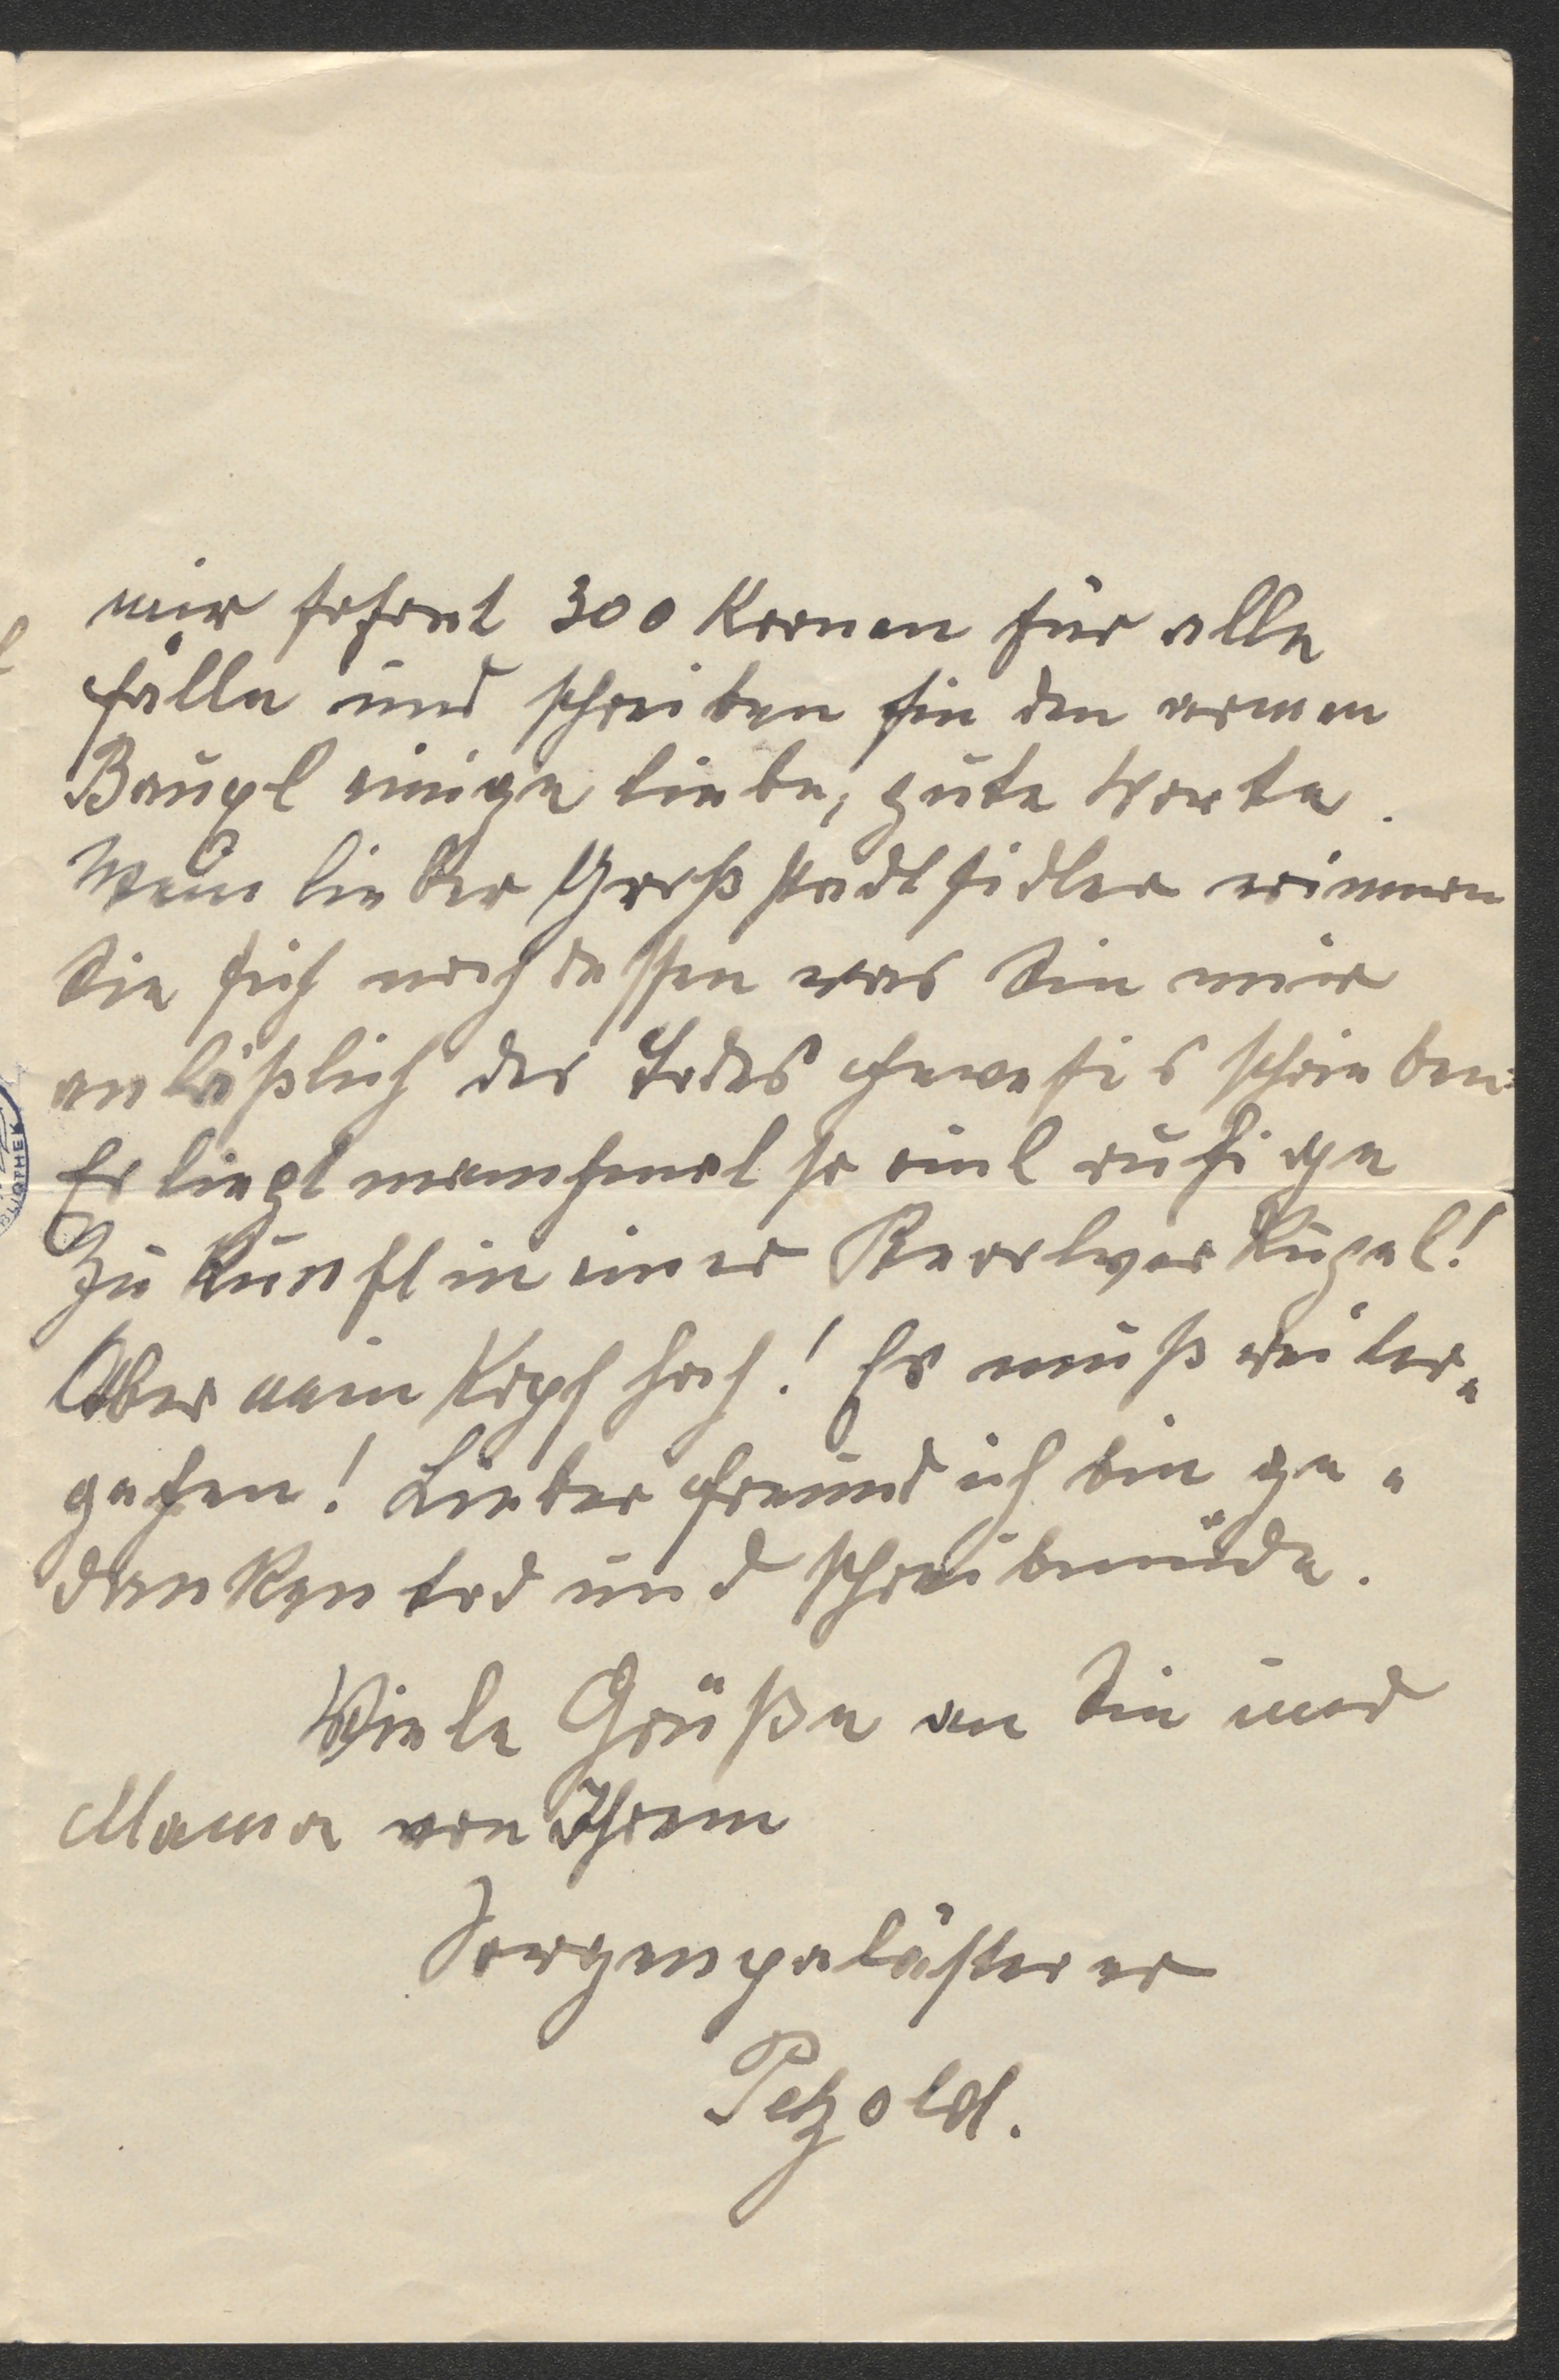 mir sofort 300 Kronen für alle
Fälle und schreiben sie den armen
Baupl einige liebe, gute Worte.
Mein lieber Großstadtsidler erinnern
Sie sich noch dessen was Sie mir
anläßlich des Todes schrieben
Es liegt manchmal so viel ruhige
Zukunft in einer Revolverkugel!
Aber nein Kopf hoch! Es muß weiter-
gehen! Lieber Freund ich bin ge-
dankentod und schreibmüde.
Viele Grüße an Sie und
Mama von Ihrem
Sorgenpalästerer
Petzold.
BLIOTHEK